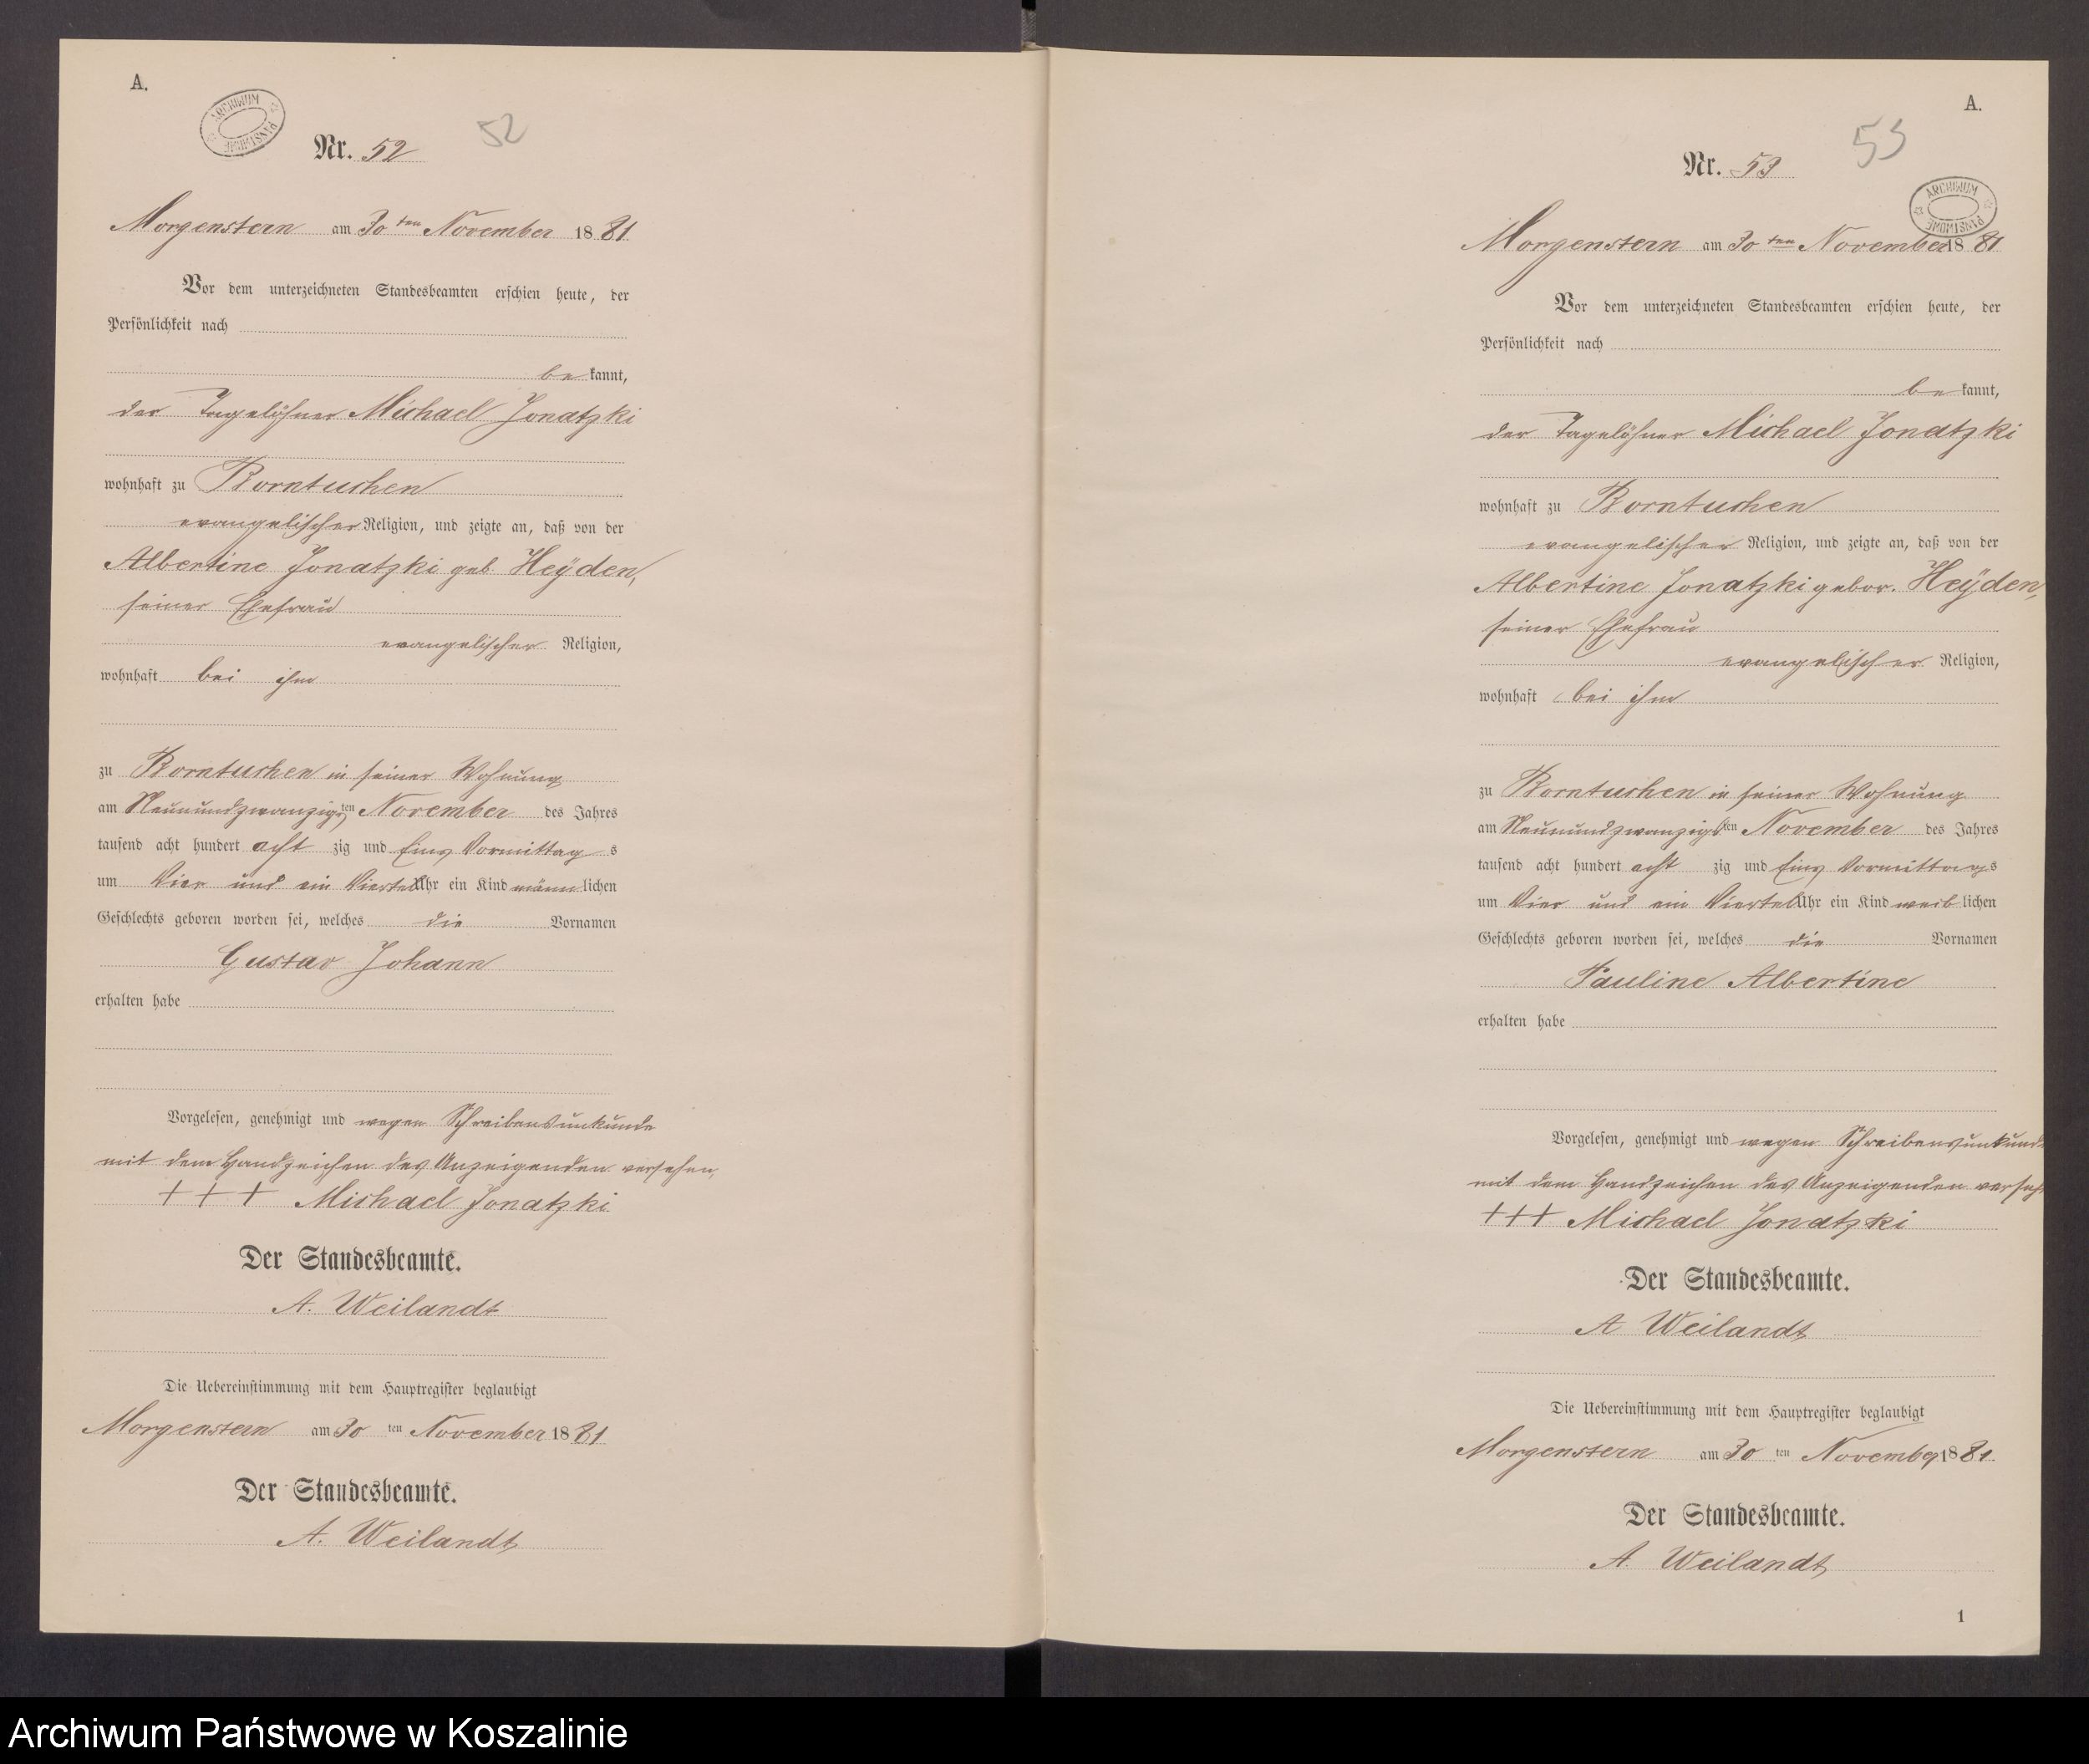 A.
ARCHIWUM PAŃSTWOWE
Nr. 52
52
Morgenstern am 30 ten November 1881
Vor dem unterzeichneten Standesbeamten erschien heute, der
Persönlichkeit nach
be kannt,
der Tagelöhner Michael Jonatzki
wohnhaft zu Borntuchen
evangelischer Religion, und zeigte an, daß von der
Albertine Jonatzki geb. Heyden,
seiner Ehefrau
evangelischer Religion,
wohnhaft bei ihm
zu Borntuchen in seiner Wohnung
am Neunundzwanzigsten November des Jahres
tausend acht hundert acht zig und Eins Vormittag s
um Vier und ein Viertel Uhr ein Kind männ lichen
Geschlechts geboren worden sei, welches die Vornamen
Gustav Johann
erhalten habe
Vorgelesen, genehmigt und wegen Schreibensunkunde
mit dem Handzeichen des Anzeigenden versehen,
+ + + Michael Jonatzki
Der Standesbeamte.
A. Weilandt
Die Uebereinstimmung mit dem Hauptregister beglaubigt
Morgenstern am 30 ten November 1881
Der Standesbeamte.
A. Weilandt
A.
Nr. 53
53
ARCHIWUM PAŃSTWOWE
Morgenstern am 30 ten November 1881
Vor dem unterzeichneten Standesbeamten erschien heute, der
Persönlichkeit nach
be kannt,
der Tagelöhner Michael Jonatzki
wohnhaft zu Borntuchen
evangelischer Religion, und zeigte an, daß von der
Albertine Jonatzki gebor. Heyden,
seiner Ehefrau
evangelischer Religion,
wohnhaft bei ihm
zu Borntuchen in seiner Wohnung
am Neunundzwanzigsten November des Jahres
tausend acht hundert acht zig und Eins Vormittags
um Vier und ein Viertel Uhr ein Kind weib lichen
Geschlechts geboren worden sei, welches die Vornamen
Pauline Albertine
erhalten habe
Vorgelesen, genehmigt und wegen Schreibensunkunde
mit dem Handzeichen des Anzeigenden verseh
+++ Michael Jonatzki
Der Standesbeamte.
A Weilandt
Die Uebereinstimmung mit dem Hauptregister beglaubigt
Morgenstern am 30 ten November 1881.
Der Standesbeamte.
A. Weilandt
1
Archiwum Państwowe w Koszalinie